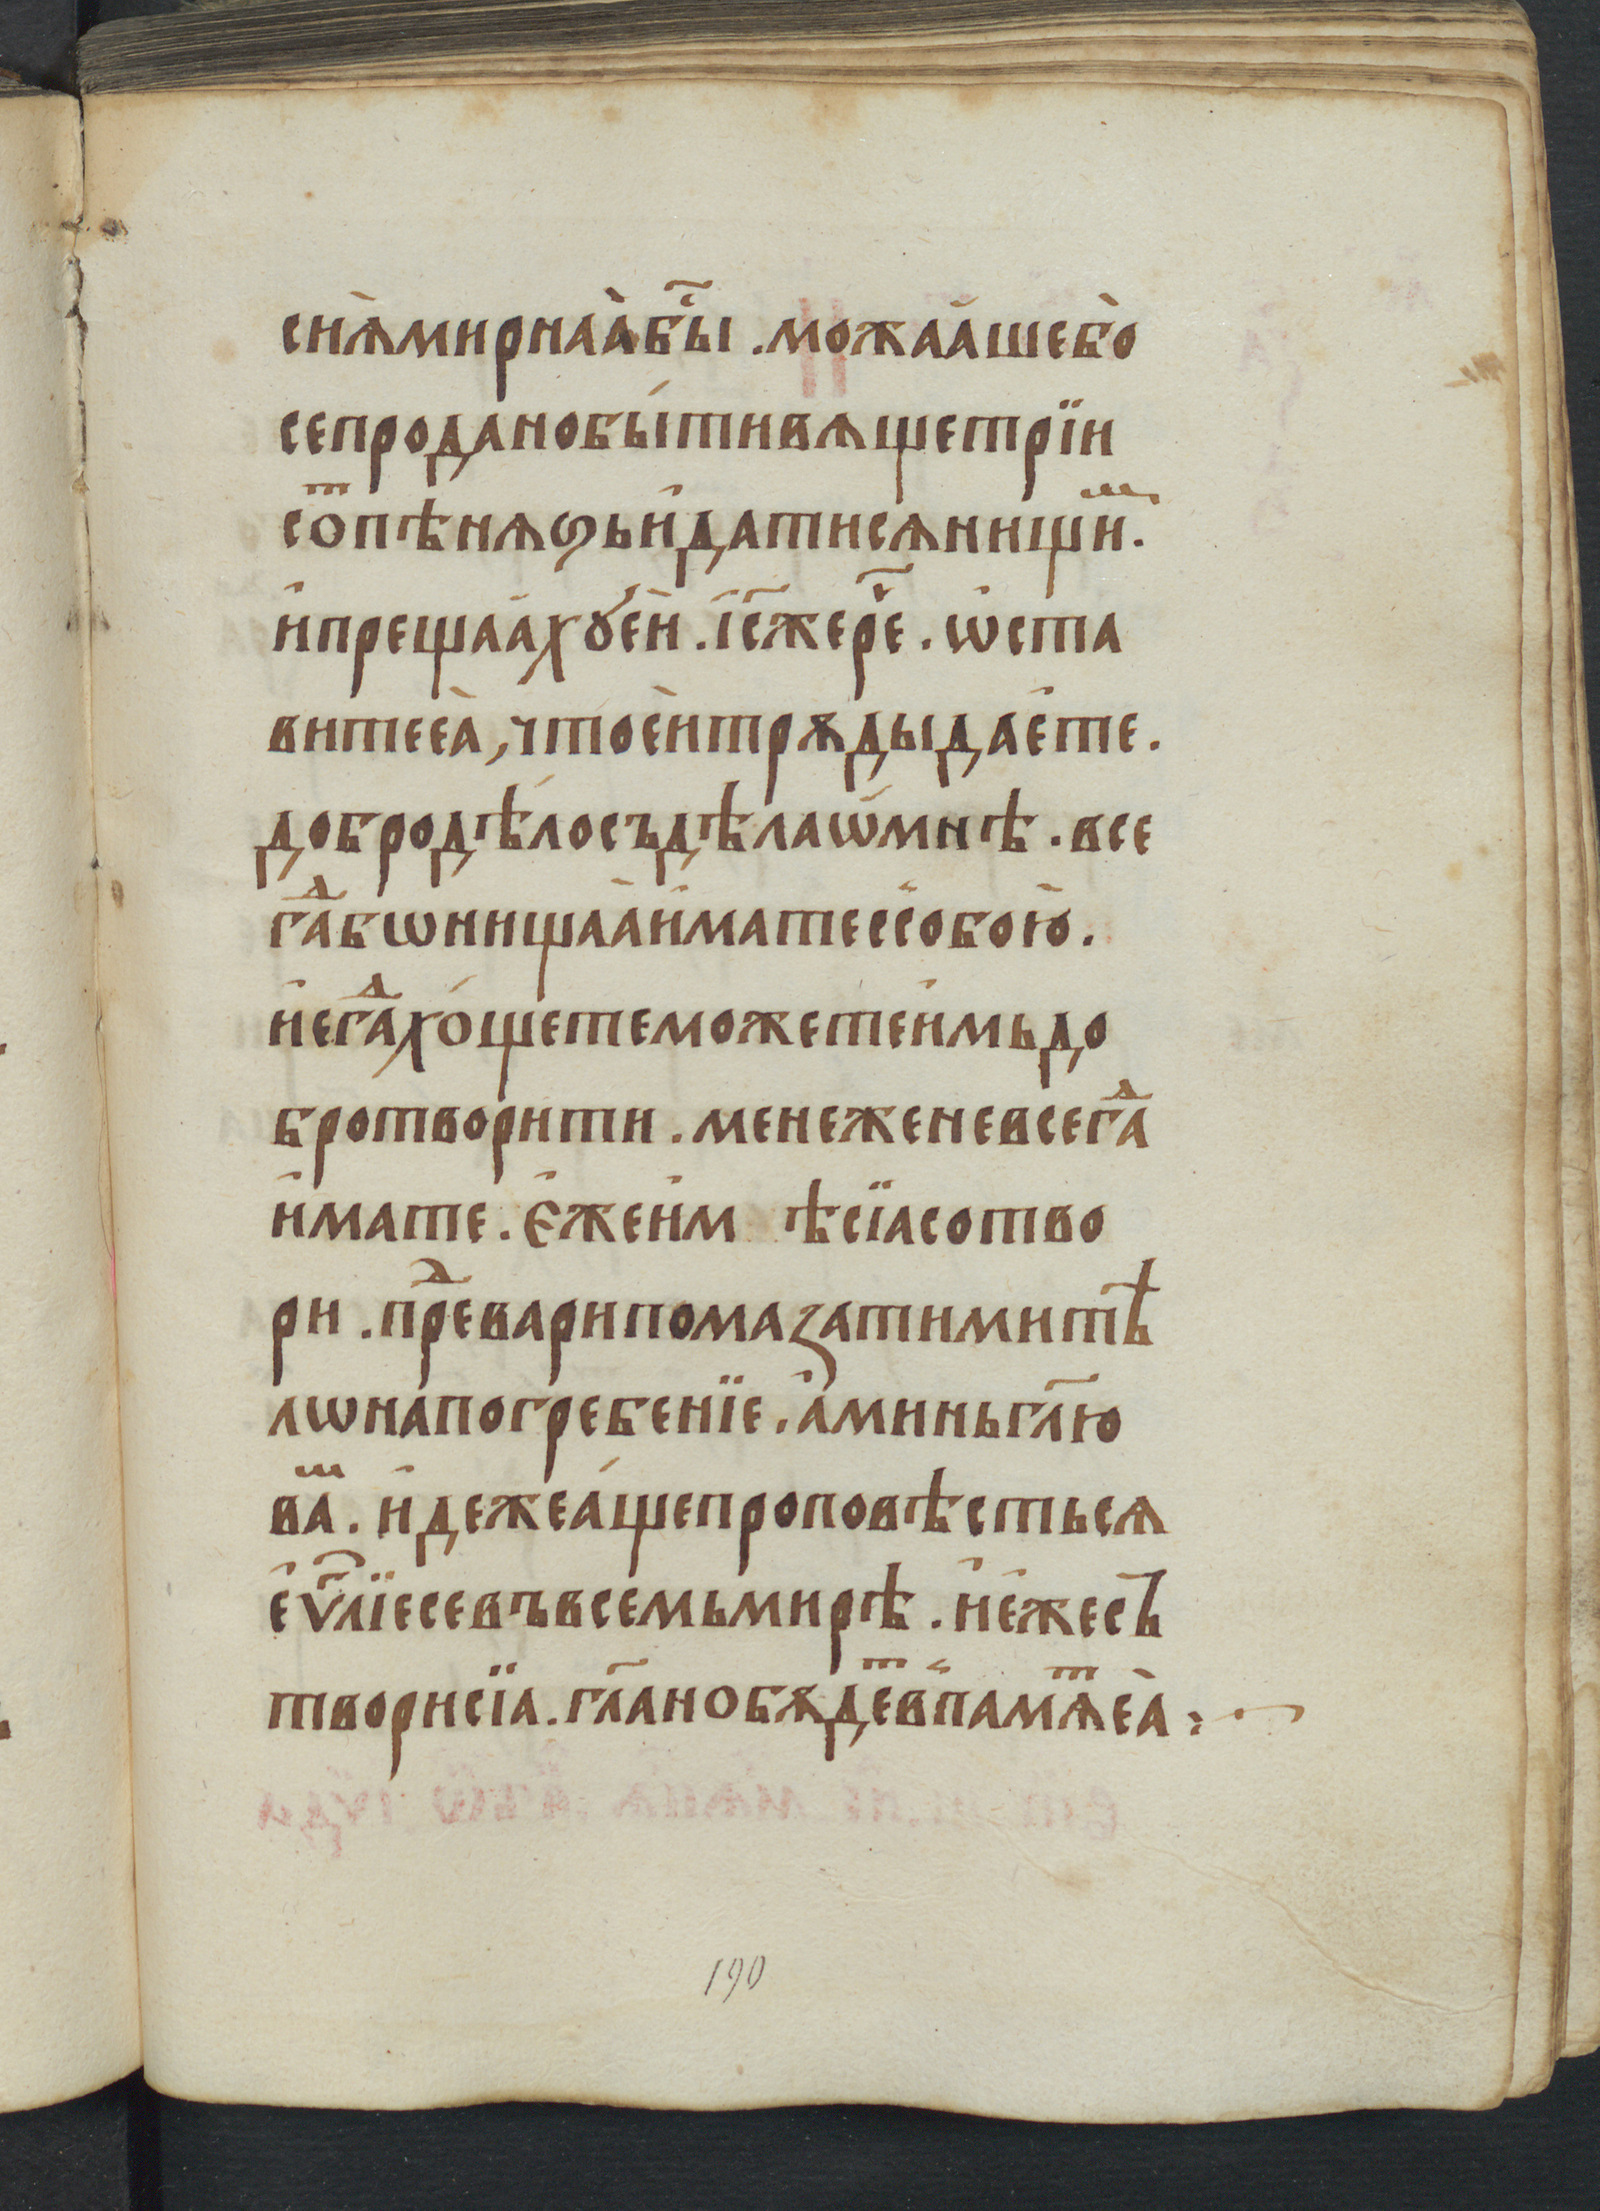 сиѧ̀мирнаа̀бы̑с҇ . можаа́шебо̀
сепроданобы́тивѧщетрїи
сⷮопѣнѧѕьи҆датисѧнищиⷨ.
и҆прещаа́хꙋе҆и . і҆с҃жере҃ч . ѡ҆ста
витееа̀, чтое҆итрꙋ́дыдае́те .
доброд́ѣлосъдѣлаѡ҆мнѣ . все
гаⷣбѡнищаа̀и҆матессобою̀ .
и҆егаⷣхо́щетеможетеи҆мьдо
бротворити . менеженевсегаⷣ
и҆мате . є҆жеи҆м ѣсїасотво
ри . преⷣварипомаꙁатимитѣ
лѡнапогребенїе . а҆миньгл҃ю
ваⷨ . и҆дежеа́щепроповѣстьсѧ
е҆ѵⷢ҇лїесевъвсемьмирѣ . и҆е́жесъ
творисїа . гл҃анобѫдеⷮвпамѧⷮеа̀ :~
190